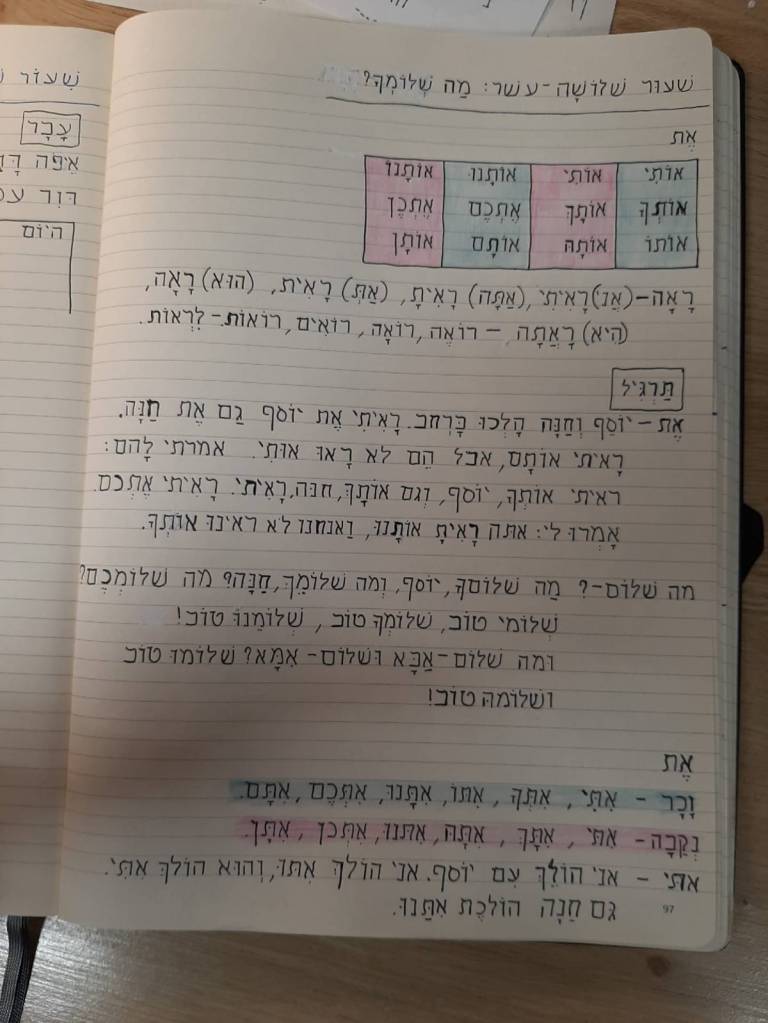 שִׁעוּר שְׁלוֹשָׁה-עשר: מַה שְׁלוֹמְךָ?
אֶת
אוֹתִי אוֹתִי אוֹתָנוּ אוֹתָנוּ
אוֹתְךָ אוֹתָךְ אֶתְכֶם אֶתְכֶן
אוֹתוֹ אוֹתָהּ אוֹתָם אוֹתָן
רָאָה-(אֲנִי) רָאִיתִי, (אַתָּה) רָאִיתָ, (אַתְּ) רָאִית, (הוּא) רָאָה,
(הִיא) רָאֲתָה, - רוֹאֶה, רוֹאָה, רוֹאִים, רוֹאוֹת. - לִרְאוֹת.
תַּרְגִּיל
אֶת - יוֹסֵף וְחַנָּה הָלְכוּ בָּרְחב. רָאִיתִי אֶת יוֹסף גַם אֶת חַנָּה.
רָאִיתִי אוֹתָם, אבל הֵם לא רָאוּ אוֹתִי. אמרתי לָהם:
ראיתי אוֹתְךָ, יוסף, וְגם אוֹתָךְ, חנּה, רָאִיתִי. רָאִיתי אֶתְכם.
אָמְרוּ לי: אתּה רָאִיתָ אוֹתָנוּ, וַאנחנו לא ראינוּ אוֹתְךָ.
מה שׁלוֹם-? מַה שׁלוֹמךָ, יוֹסף, וְמה שׁלוֹמֵךְ, חַנָּה? מה שׁלוֹמְכֶם?
שְׁלוֹמי טוֹב, שְׁלוֹמְךָ טוֹב, שְׁלוֹמֵנוּ טוֹב!
וּמה שׁלוֹם-אַבָּא וּשׁלוֹם-אִמָּא? שׁלוֹמוֹ טוֹב
וּשׁלוֹמהּ טוֹב!
אֶת
זָכָר - אִתִּי, אִתְּךָ, אִתּוֹ, אִתָּנוּ, אִתְּכֶם, אִתָּם.
נְקֵבָה- אִתִּי, אִתָּךְ, אִתָּהּ, אִתּנוּ, אִתּכן, אִתָּן.
אתּי - אני הוֹלֵךְ עִם יוֹסף. אני הוֹלךְ אִתּוֹ, וְהוּא הוֹלךְ אִתִּי.
גַּם חַנָּה הוֹלֶכֶת אִתָּנוּ.
97
שִׁעוּר
עָבָר
אֵיפֹה
דּוֹד
היּוֹם